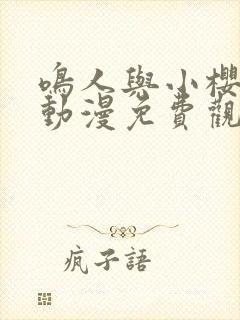 鳴人與小櫻
動漫免費觀
疯子語